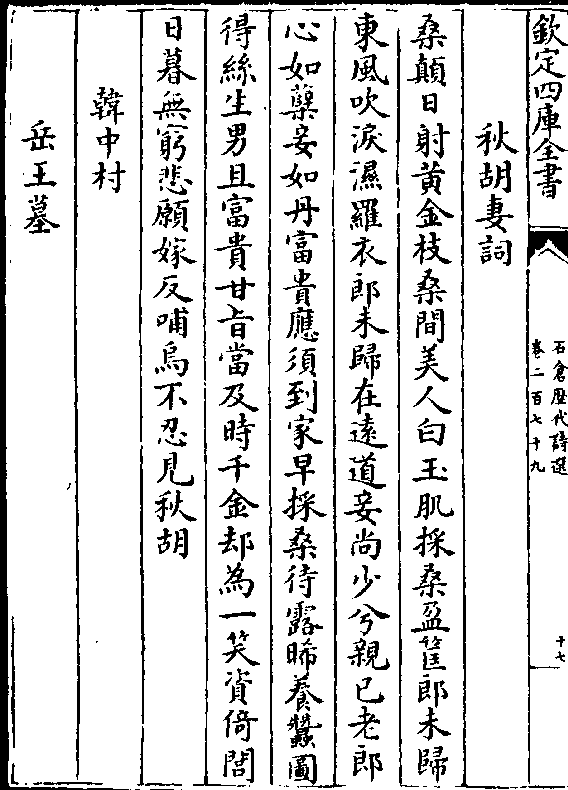 欽定四庫全書
石倉歷代詩選
卷二百七十九
十七
秋胡妻詞
桑顛日射黃金枝桑間美人白玉肌採桑盈筐郎未歸
東風吹淚濕羅衣郎未歸在遠道妾尚少兮親已老郎
心如蘗妾如丹富貴應須到家早採桑待露晞養蠶圖
得絲生男且富貴甘旨當及時千金却為一笑資倚閭
日暮無窮悲願嫁反哺烏不忍見秋胡
韓中村
岳王墓